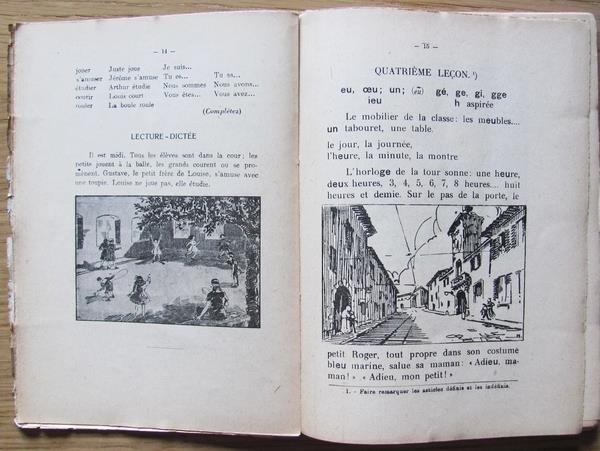 — 14 —
jouer Juste joue Je suis...
s'amuser Jérôme s'amuse Tu es... Tu as...
étudier Arthur étudie Nous sommes Nous avons...
courir Louis court Vous êtes... Vous avez...
rouler La boule roule
(Complétez)
LECTURE - DICTÉE
Il est midi. Tous les élèves sont dans la cour; les
petits jouent à la balle, les grands courent ou se pro-
mènent. Gustave, le petit frère de Louise, s'amuse avec
une toupie. Louise ne joue pas, elle étudie.
— 15 —
QUATRIÈME LEÇON. ¹)
eu, œu; un; gé, ge, gi, gge
ieu h aspirée
Le mobilier de la classe: les meubles....
un tabouret, une table.
le jour, la journée,
l'heure, la minute, la montre
L'horloge de la tour sonne: une heure,
deux heures, 3, 4, 5, 6, 7, 8 heures.... huit
heures et demie. Sur le pas de la porte, le
petit Roger, tout propre dans son costume
bleu marine, salue sa maman: « Adieu, ma-
man! » « Adieu, mon petit! »
1. - Faire remarquer les articles définis et les indéfinis.